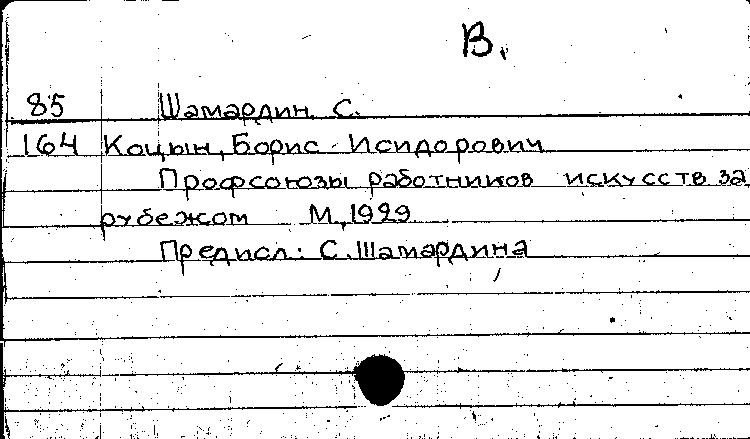 В.
85 Шамардин С.
164 Коцын, Борис Исидорович
Профсоюзы работников искусств за
рубежом М, 1929
Предисл: С. Шамардина